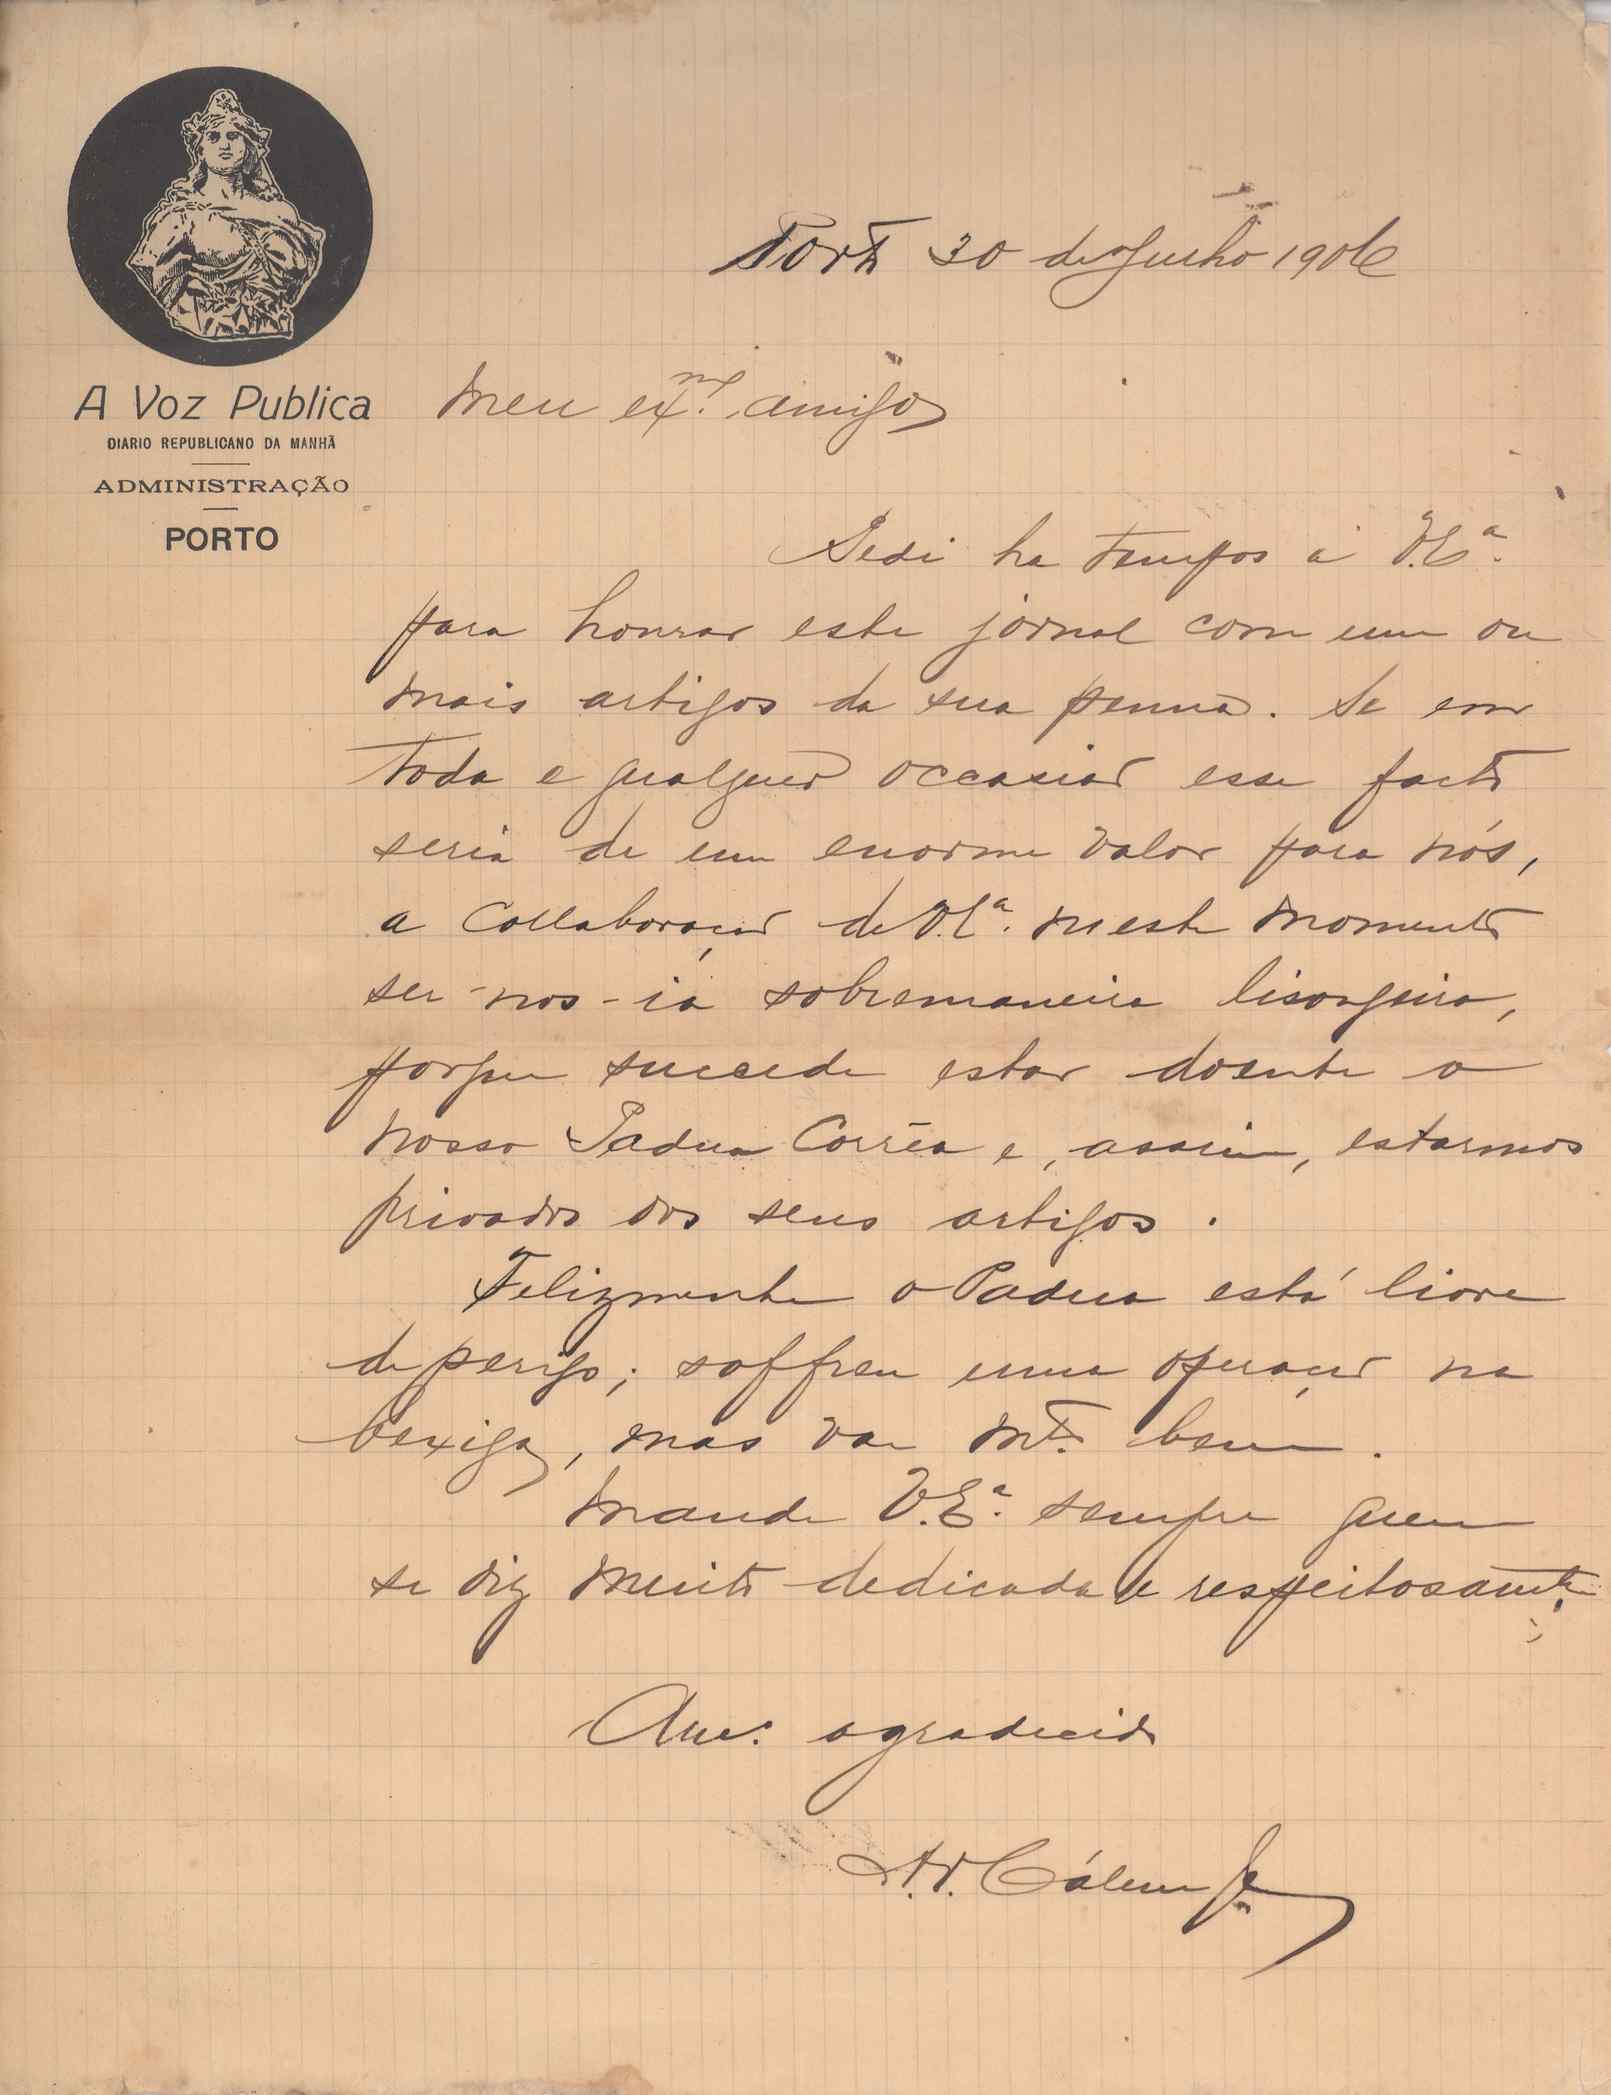 A Voz Publica
DIARIO REPUBLICANO DA MANHÃ
ADMINISTRAÇÃO
PORTO
Porto 30 de Junho 1906
Meu ex.mo amigo
Pedi ha tempos a V.Ex.ª
para honrar este jornal com um ou
mais artigos da sua penna. Se em
toda e qualquer occasião esse facto
seria de um enorme valor para nós,
a collaboração de V.Ex.ª neste momento
ser-nos-ia sobremaneira lisongeira,
porque succede estar doente o
nosso Padua Corrêa e, assim, estarmos
privados dos seus artigos.
Felizmente o Padua está livre
de perigo; soffreu uma operação na
bexiga, mas vae mt.º bem.
Mande V.Ex.ª sempre quem
se diz muito dedicada e respeitosamte.
Am.º agradecido
Cálem Jr